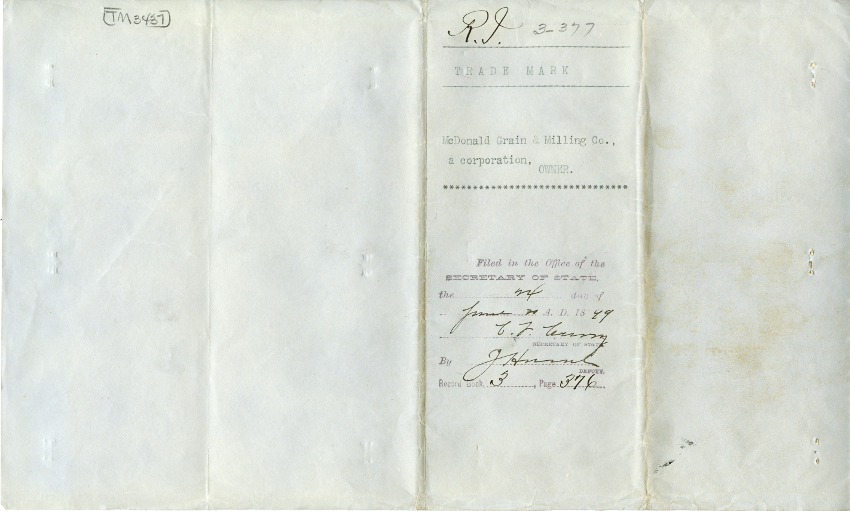 TM3437
R.I. 3-377
TRADE MARK
McDonald Grain & Milling Co.,
a corporation,
OWNER.
*******************************
Filed in the Office of the
SECRETARY OF STATE,
the 24 day of
June A. D. 1899
C. F. Curry
SECRETARY OF STATE
By J Hoesch
DEPUTY.
Record Book 3, Page 376